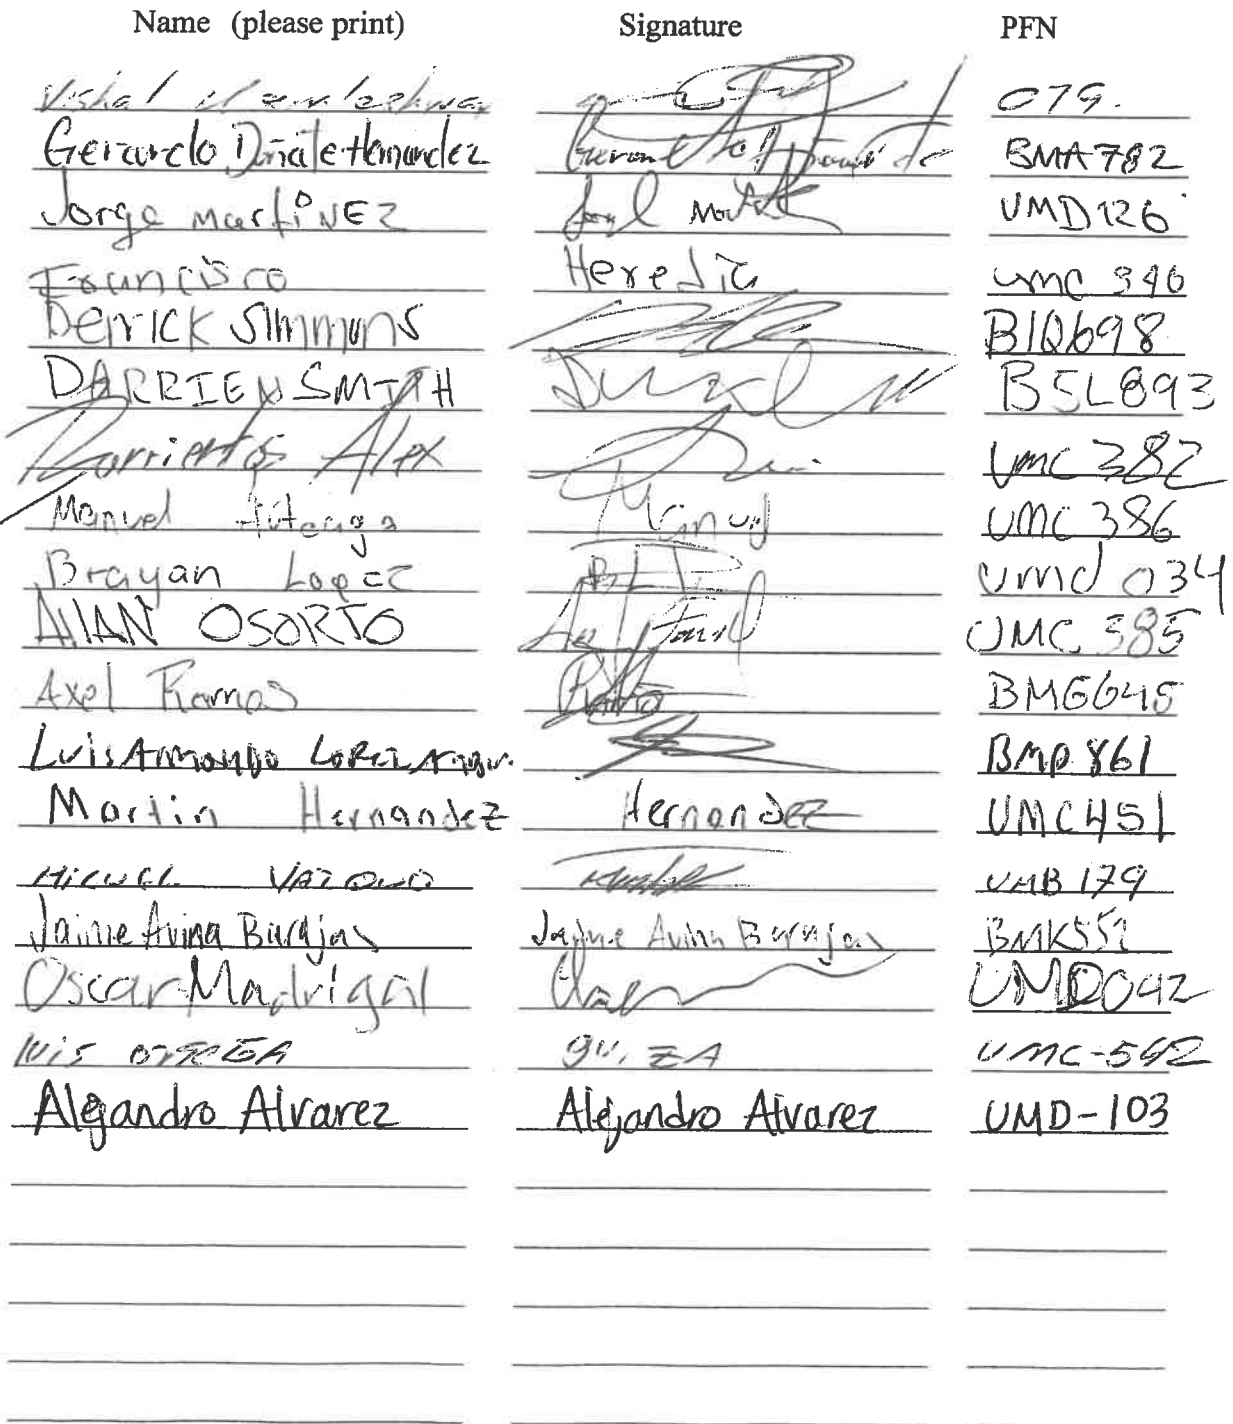 Name (please print) Signature PFN
Vishal 079.
Gerardo Hernandez BMA782
Jorge MartiNEZ UMD126
Francisco Heredia UMC 346
Derrick Simmons BIQ698
DARRIEN SMITH BSL893
Barrientos Alex UMC 382
Manuel Manuel UMC 386
Brayan Lopez Umd 034
AllAN OSORTO UMC 385
Axel Ramos BMG645
Luis Armando LOPEZ BMP861
Martin Hernandez Hernandez UMC451
MIGUEL UMB 179
Jaime Avina Barajas Jaime Avina Barajas BMK551
Oscar Madrigal UMD042
luis ortEGA UMC-592
Alejandro Alvarez Alejandro Alvarez UMD-103